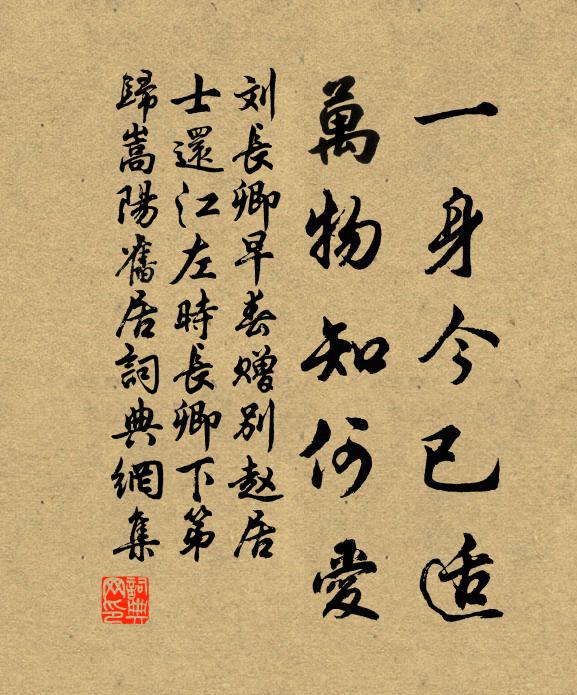 一身今已适
萬物知何愛
刘長卿早春赠别赵居
士還江左時長卿下第
歸嵩陽舊居詞典網集
詞典網印